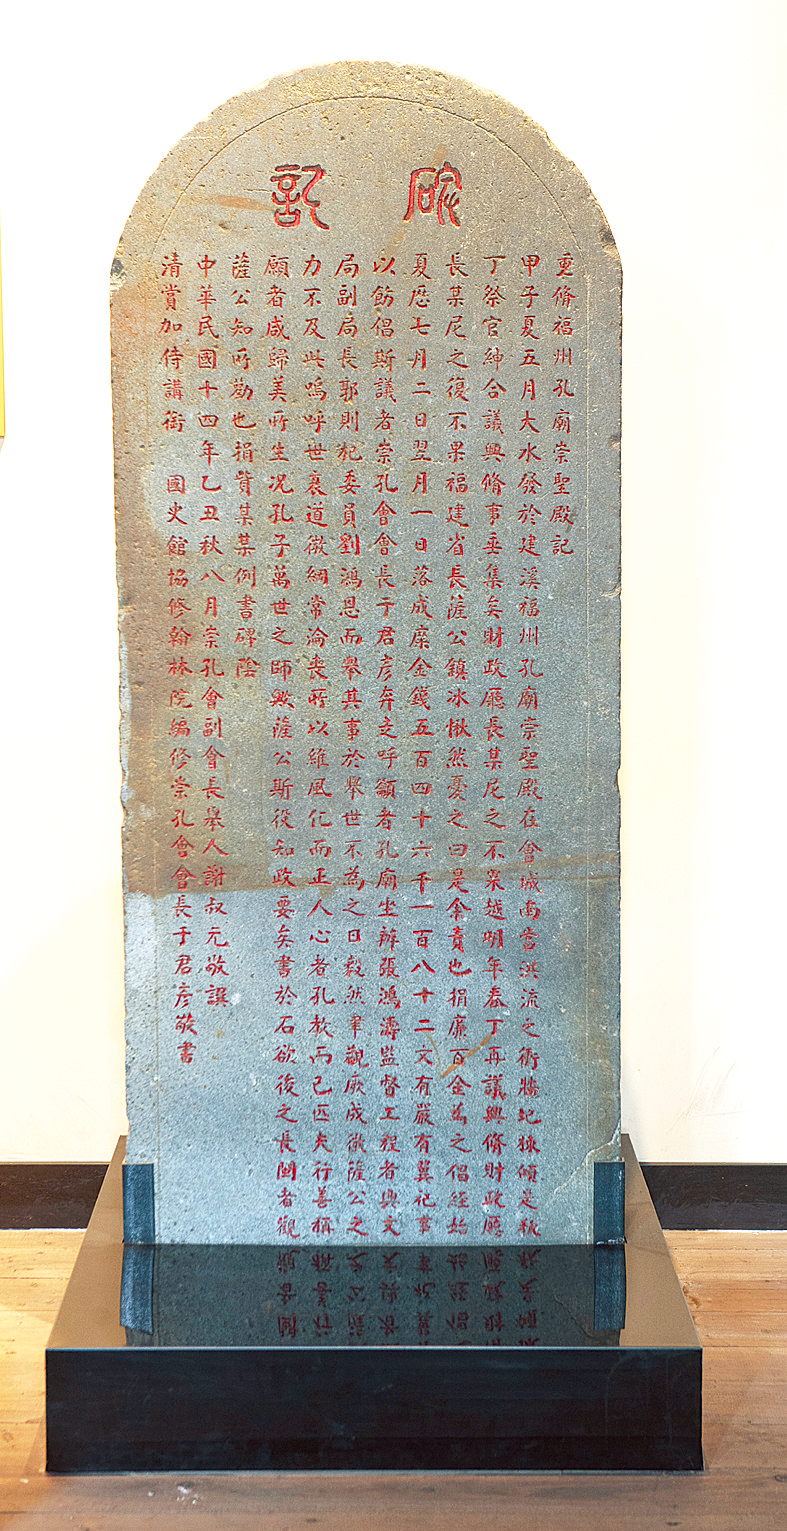 碑記
重脩福州孔廟崇聖殿記
甲子夏五月大水發於建溪福州孔廟崇聖殿在會城南當洪流之衝牆圮棟傾是秋
丁祭官紳合議興脩事垂集矣財政廳長某尼之不果越明年春丁再議興脩財政廳
長某尼之復不果福建省長薩公鎮冰愀然憂之曰是余責也捐廉百金為之倡經始
夏厯七月二日翌月一日落成糜金錢五百四十六千一百八十二文有嚴有翼祀事
以飭倡斯議者崇孔會會長于君彥奔走呼籲者孔廟坐辦張鴻濤監督工程者與文
局副局長郭則杞委員劉鴻恩而舉其事於舉世不為之日毅然聿觀厥成微薩公之
力不及此嗚呼世衰道微綱常淪喪所以維風化而正人心者孔教而已匹夫行善稱
願者咸歸美所生况孔子萬世之師歟薩公斯役知政要矣書於石欲後之長閩者觀
薩公知所勸也捐貲某某例書碑陰
中華民國十四年乙丑秋八月崇孔會副會長舉人謝叔元敬譔
清賞加侍講銜 國史館協修翰林院編修崇孔會會長于君彥敬書